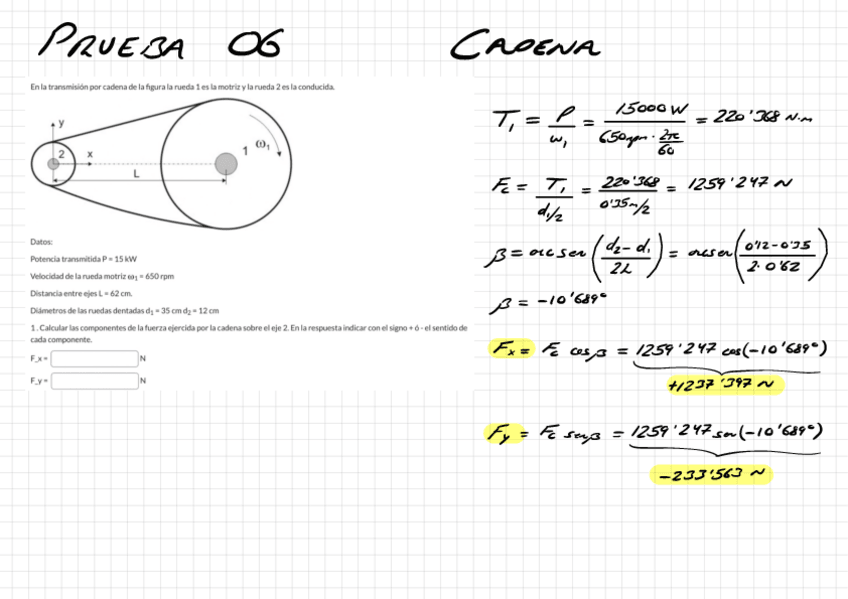 PRUEBA 06
CADENA
En la transmisión por cadena de la figura la rueda 1 es la motriz y la rueda 2 es la conducida.
y
2
x
1
ω₁
L
Datos:
Potencia transmitida P = 15 kW
Velocidad de la rueda motriz ω₁ = 650 rpm
Distancia entre ejes L = 62 cm.
Diámetros de las ruedas dentadas d₁ = 35 cm d₂ = 12 cm
1 . Calcular las componentes de la fuerza ejercida por la cadena sobre el eje 2. En la respuesta indicar con el signo + ó - el sentido de
cada componente.
F_x = N
F_y = N
T₁ = P/ω₁ = 15000 W / (650rpm · 2π/60) = 220'368 N·m
Fc = T₁/(d₁/2) = 220'368/(0'35m/2) = 1259'247 N
β = arcsen((d₂-d₁)/2L) = arcsen((0'12-0'35)/(2·0'62))
β = -10'689°
Fx = Fc cosβ = 1259'247 cos(-10'689°)
+1237'397 N
Fy = Fc senβ = 1259'247 sen(-10'689°)
-233'563 N